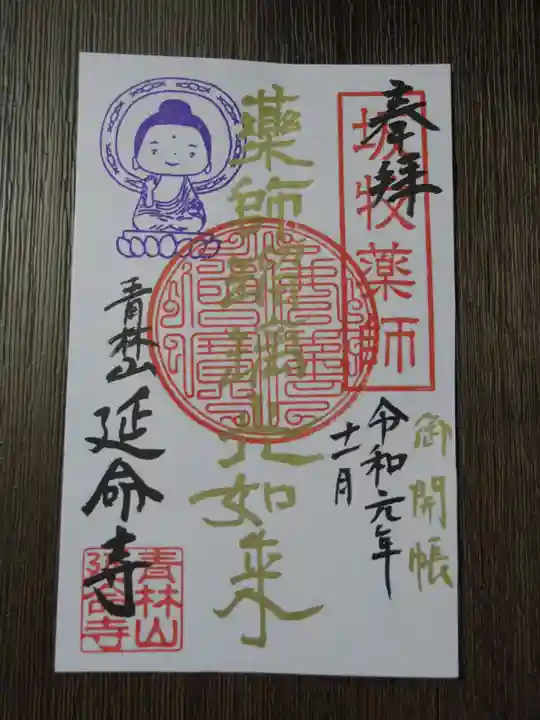 奉拝
坂牧薬師
御開帳
令和元年
十一月
薬師瑠璃光如来
青林山
延命寺
青林山
延命寺